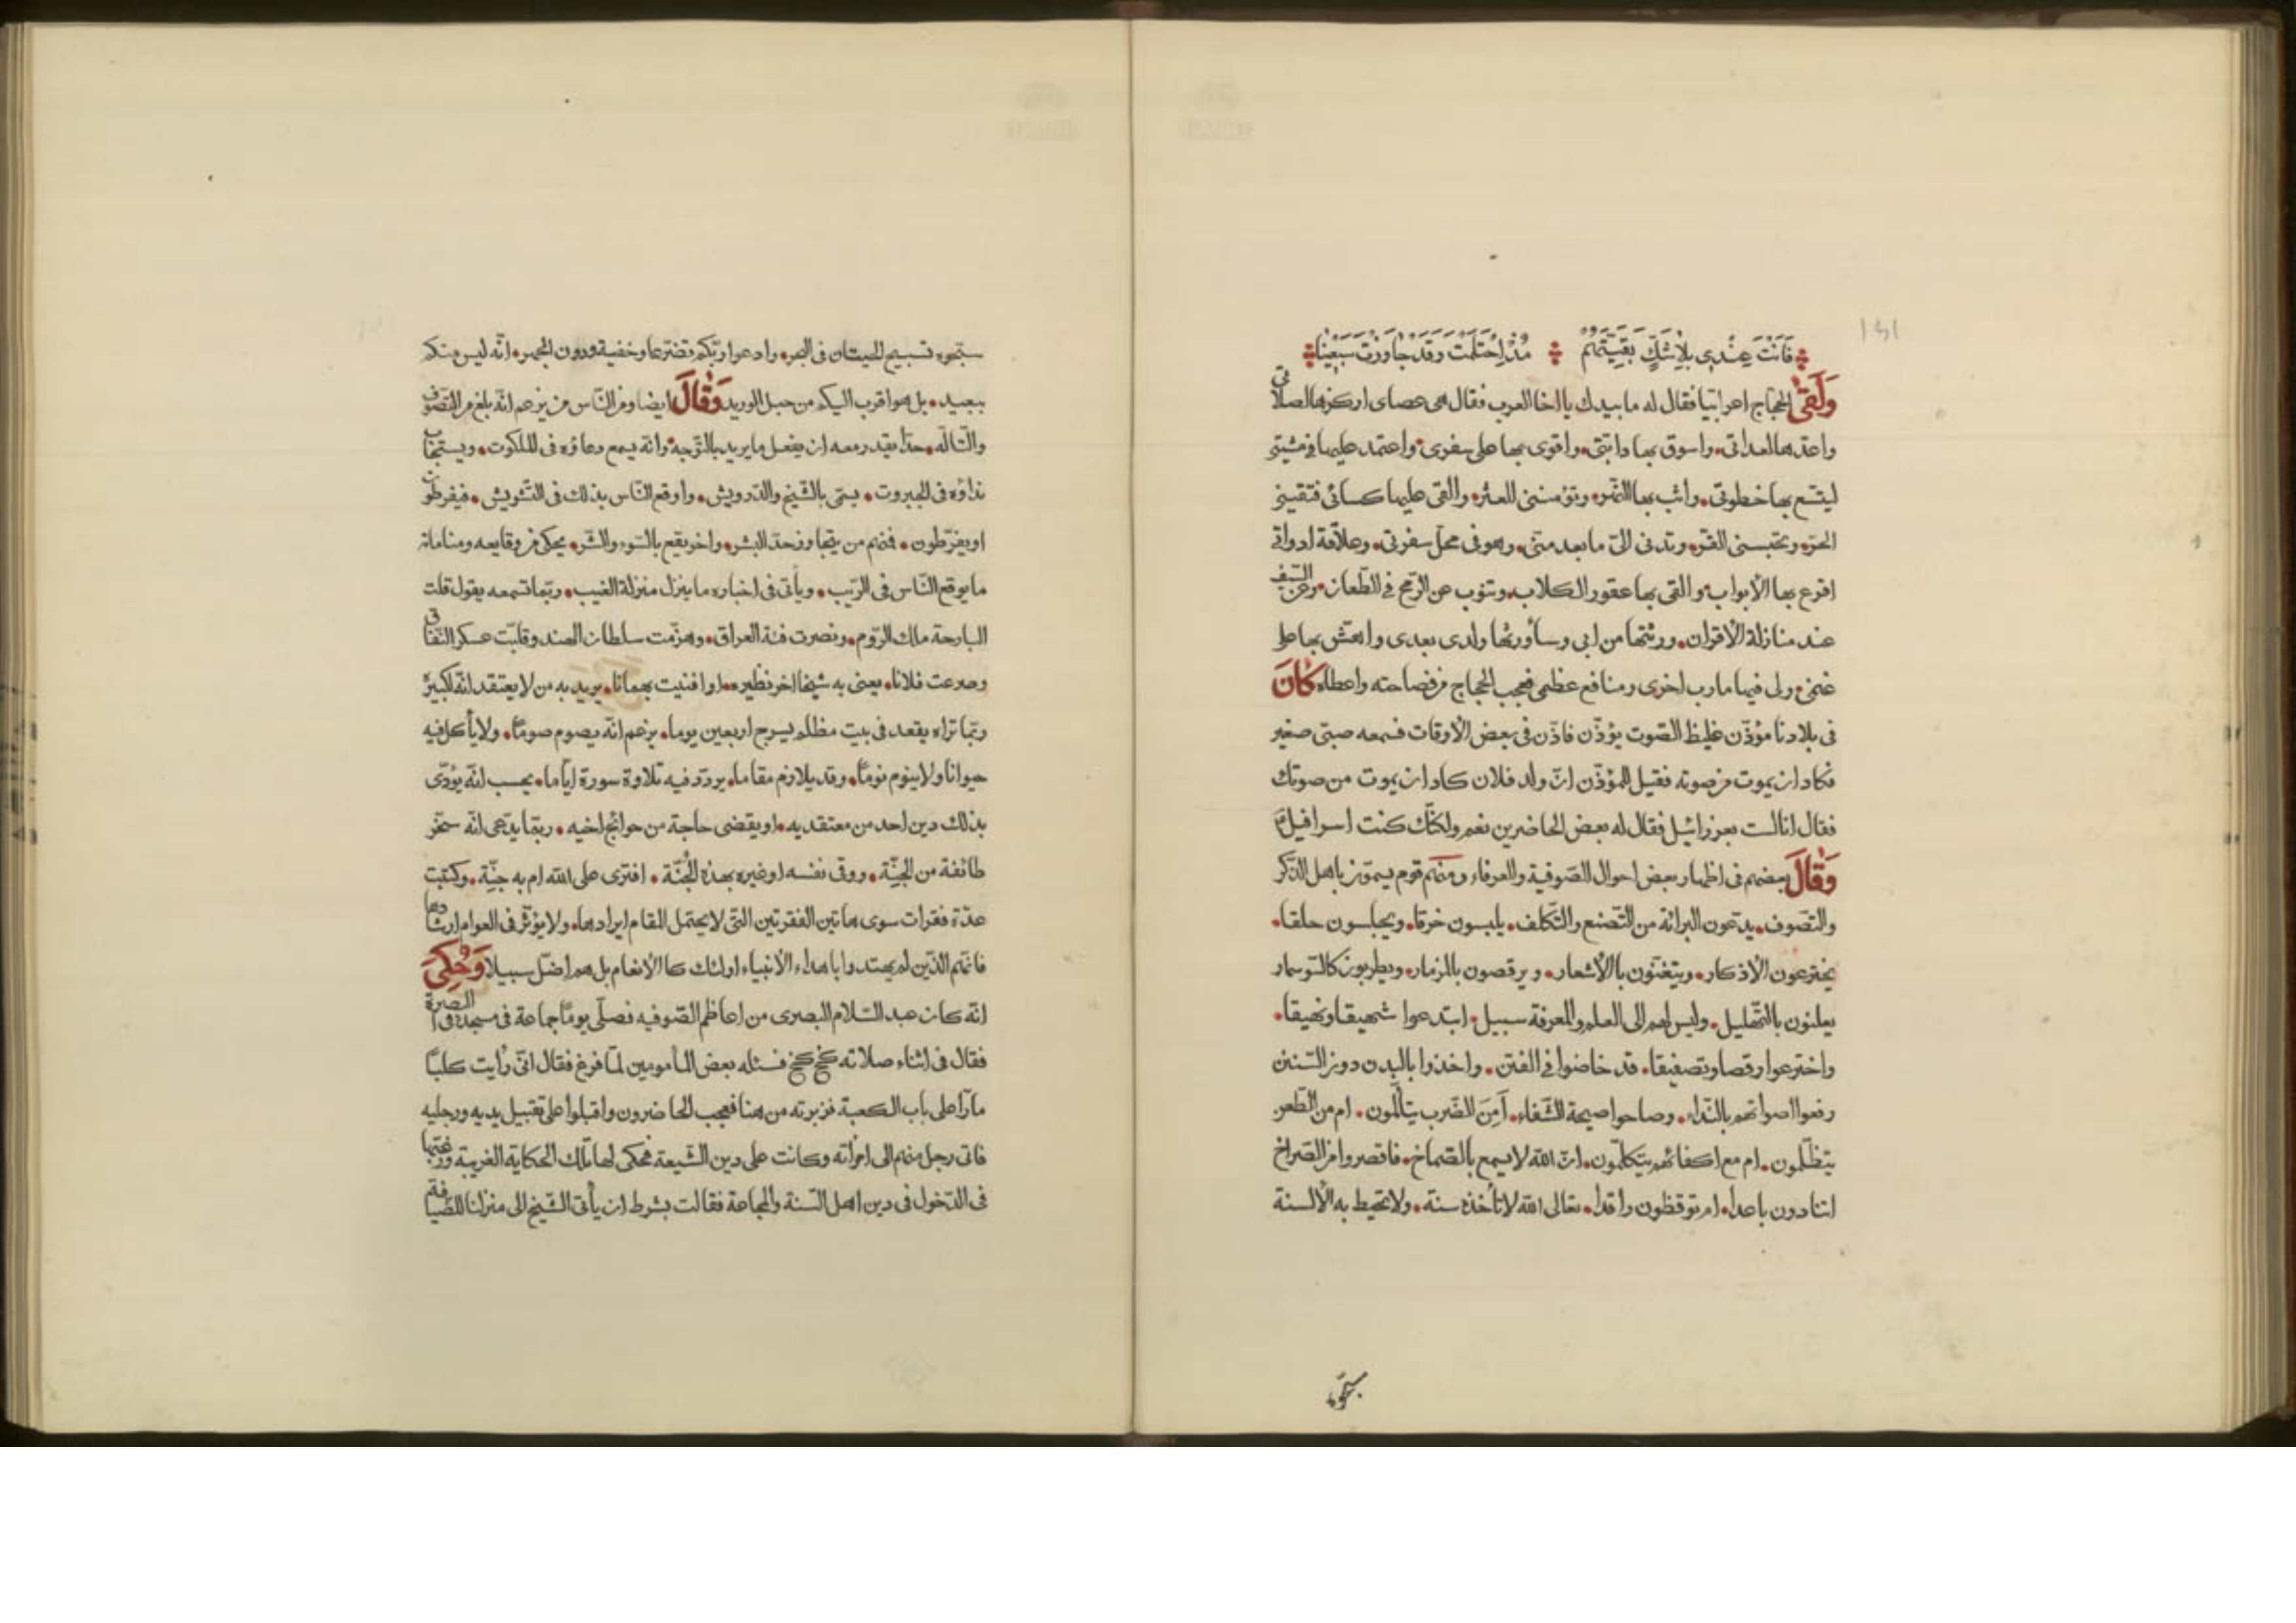 فَاَنْتَ عِنْدِى بِلَا شَكٍّ بَقِيَّتَهُمْ مُذْ اِحْتَلَمْتَ وَقَدْ جَاوَزْتَ سَبْعِينَا
وَلَقَى الحجاج اعرابيا فقال له ما بيدك يا اخا العرب فقال هى عصاى اركزها لصلاتى
واعدها لعداتى واسوق بها دابتى واقوى بها على سفرى واعتمد عليها فى مشيتى
ليتسع بها خطوتى واثب بها النهر وتؤمننى العثر والقى عليها كسائى فتقينى
الحر ويجنبنى القر وتدنى الىّ ما بعد منى وهو فى محل سفرتى وعلاقة ادواتى
اقرع بها الأبواب والقى بها عقور الكلاب وتنوب عن الرمح فى الطعان وعن السيف
عند منازلة الأقران ورثتها من ابى وسأورثها ولدى بعدى واهش بها على
غنمى ولى فيها مارب اخرى ومنافع عظمى فعجب الحجاج من فصاحته واعطاه كَانَ
فى بلادنا مؤذّن غليظ الصّوت يؤذّن فاذّن فى بعض الأوقات فسمعه صبىّ صغير
فكاد ان يموت من صوته فقيل للمؤذّن انّ ولد فلان كاد ان يموت من صوتك
فقال انا لست بعزرائيل فقال له بعض الحاضرين نعم ولكنّك كنت اسرافيل
وَقَالَ بعضهم فى اظهار بعض احوال الصّوفية والعرفاء ومنهم قوم يسمّون باهل الذّكر
والتصّوف يدعون البرائة من التّصنع والتّكلف يلبسون خرقا ويجلسون حلقا
يخترعون الأذكار ويتغنّون بالأشعار ويرقصون بالمزمار ويطربون
يعلنون بالتّهليل وليس لهم الى العلم والمعرفة سبيل ابتدعوا شهيقا ونهيقا
واخترعوا رقصا وتصفيقا قد خاضوا فى الفتن واخذوا بالبدن دون السّنن
رفعوا اصواتهم بالنّداء وصاحوا صيحة الشّقاء اَمِنَ الضّرب يتألّمون ام من الطّعن
يتظلّمون ام مع اكفائهم يتكلّمون انّ الله لا يسمع بالصّماخ فاقصروا من الصّراخ
اتنادون باعدا ام توقظون راقدا تعالى الله لا تأخذه سنة ولا تحيط به الألسنة
سبّحوه
سبّحوه تسبيح الحيتان فى البحر وادعوا ربّكم تضرّعا وخفية ودون الجهر انّه ليس منكم
ببعيد بل هو اقرب اليكم من حبل الوريد وَقَالَ ايضا ومن النّاس من يزعم انّه بلغ من التّصوّف
والتّألّه حدّا يقدر معه ان يفعل ما يريد بالتّوجه وانّه يسمع دعاؤه فى الملكوت ويستجاب
نداؤه فى الجبروت يسمّى بالشّيخ والدّرويش واوقع النّاس بذلك فى التّشويش فيفرطون
او يفرّطون فمنهم من يتجاوز حدّ البشر واخر يقع بالسّوء والشّر يحكى من وقايعه ومناماته
ما يوقع النّاس فى الرّيب ويأتى فى اخباره ما ينزل منزلة الغيب وربّما تسمعه يقول قتلت
البارحة ملك الرّوم ونصرت فئة العراق وهزمت سلطان الهند وقلبت عسكر النّفاق
وصرعت فلانا يعنى به شيخا اخر نظيره او افنيت بهمانا يريد به من لا يعتقد انّه لكبيره
وربّما تراه يقعد فى بيت مظلم يسرج اربعين يوما يزعم انّه يصوم صوما ولا يأكل فيه
حيوانا ولا ينوم نوما وقد يلازم مقاما يردّد فيه تلاوة سورة ايّاما يحسب انّه يؤدّى
بذلك دين احد من معتقديه او يقضى حاجة من حوائج اخيه وربّما يدّعى انّه سخّر
طائفة من الجنّة ووقى نفسه او غيره بهذه الجُنّة افترى على الله ام به جنّة وكتبت
عدّة فقرات سوى هاتين الفقرتين التّى لا يحتمل المقام ايرادها ولا يؤثّر فى العوام ارشادها
فانّهم الذّين لم يهتدوا باهداء الأنبياء اولئك كالأنعام بل هم اضلّ سبيلا وَحُكِىَ
انّه كان عبد السّلام البصرى من اعاظم الصّوفيه فصلّى يوما جماعة فى مسجده فى البصرة
فقال فى اثناء صلاته كخ كخ فسئله بعض المأمومين لمّا فرغ فقال انّى رأيت كلبا
مارّا على باب الكعبة فزبرته من هنا فعجب الحاضرون واقبلوا على تقبيل يديه ورجليه
فاتى رجل منهم الى امرأته وكانت على دين الشّيعة فحكى لها تلك الحكاية الغريبة ورغّبها
فى الدّخول فى دين اهل السّنة والجماعة فقالت بشرط ان يأتى الشّيخ الى منزلنا للضّيافة